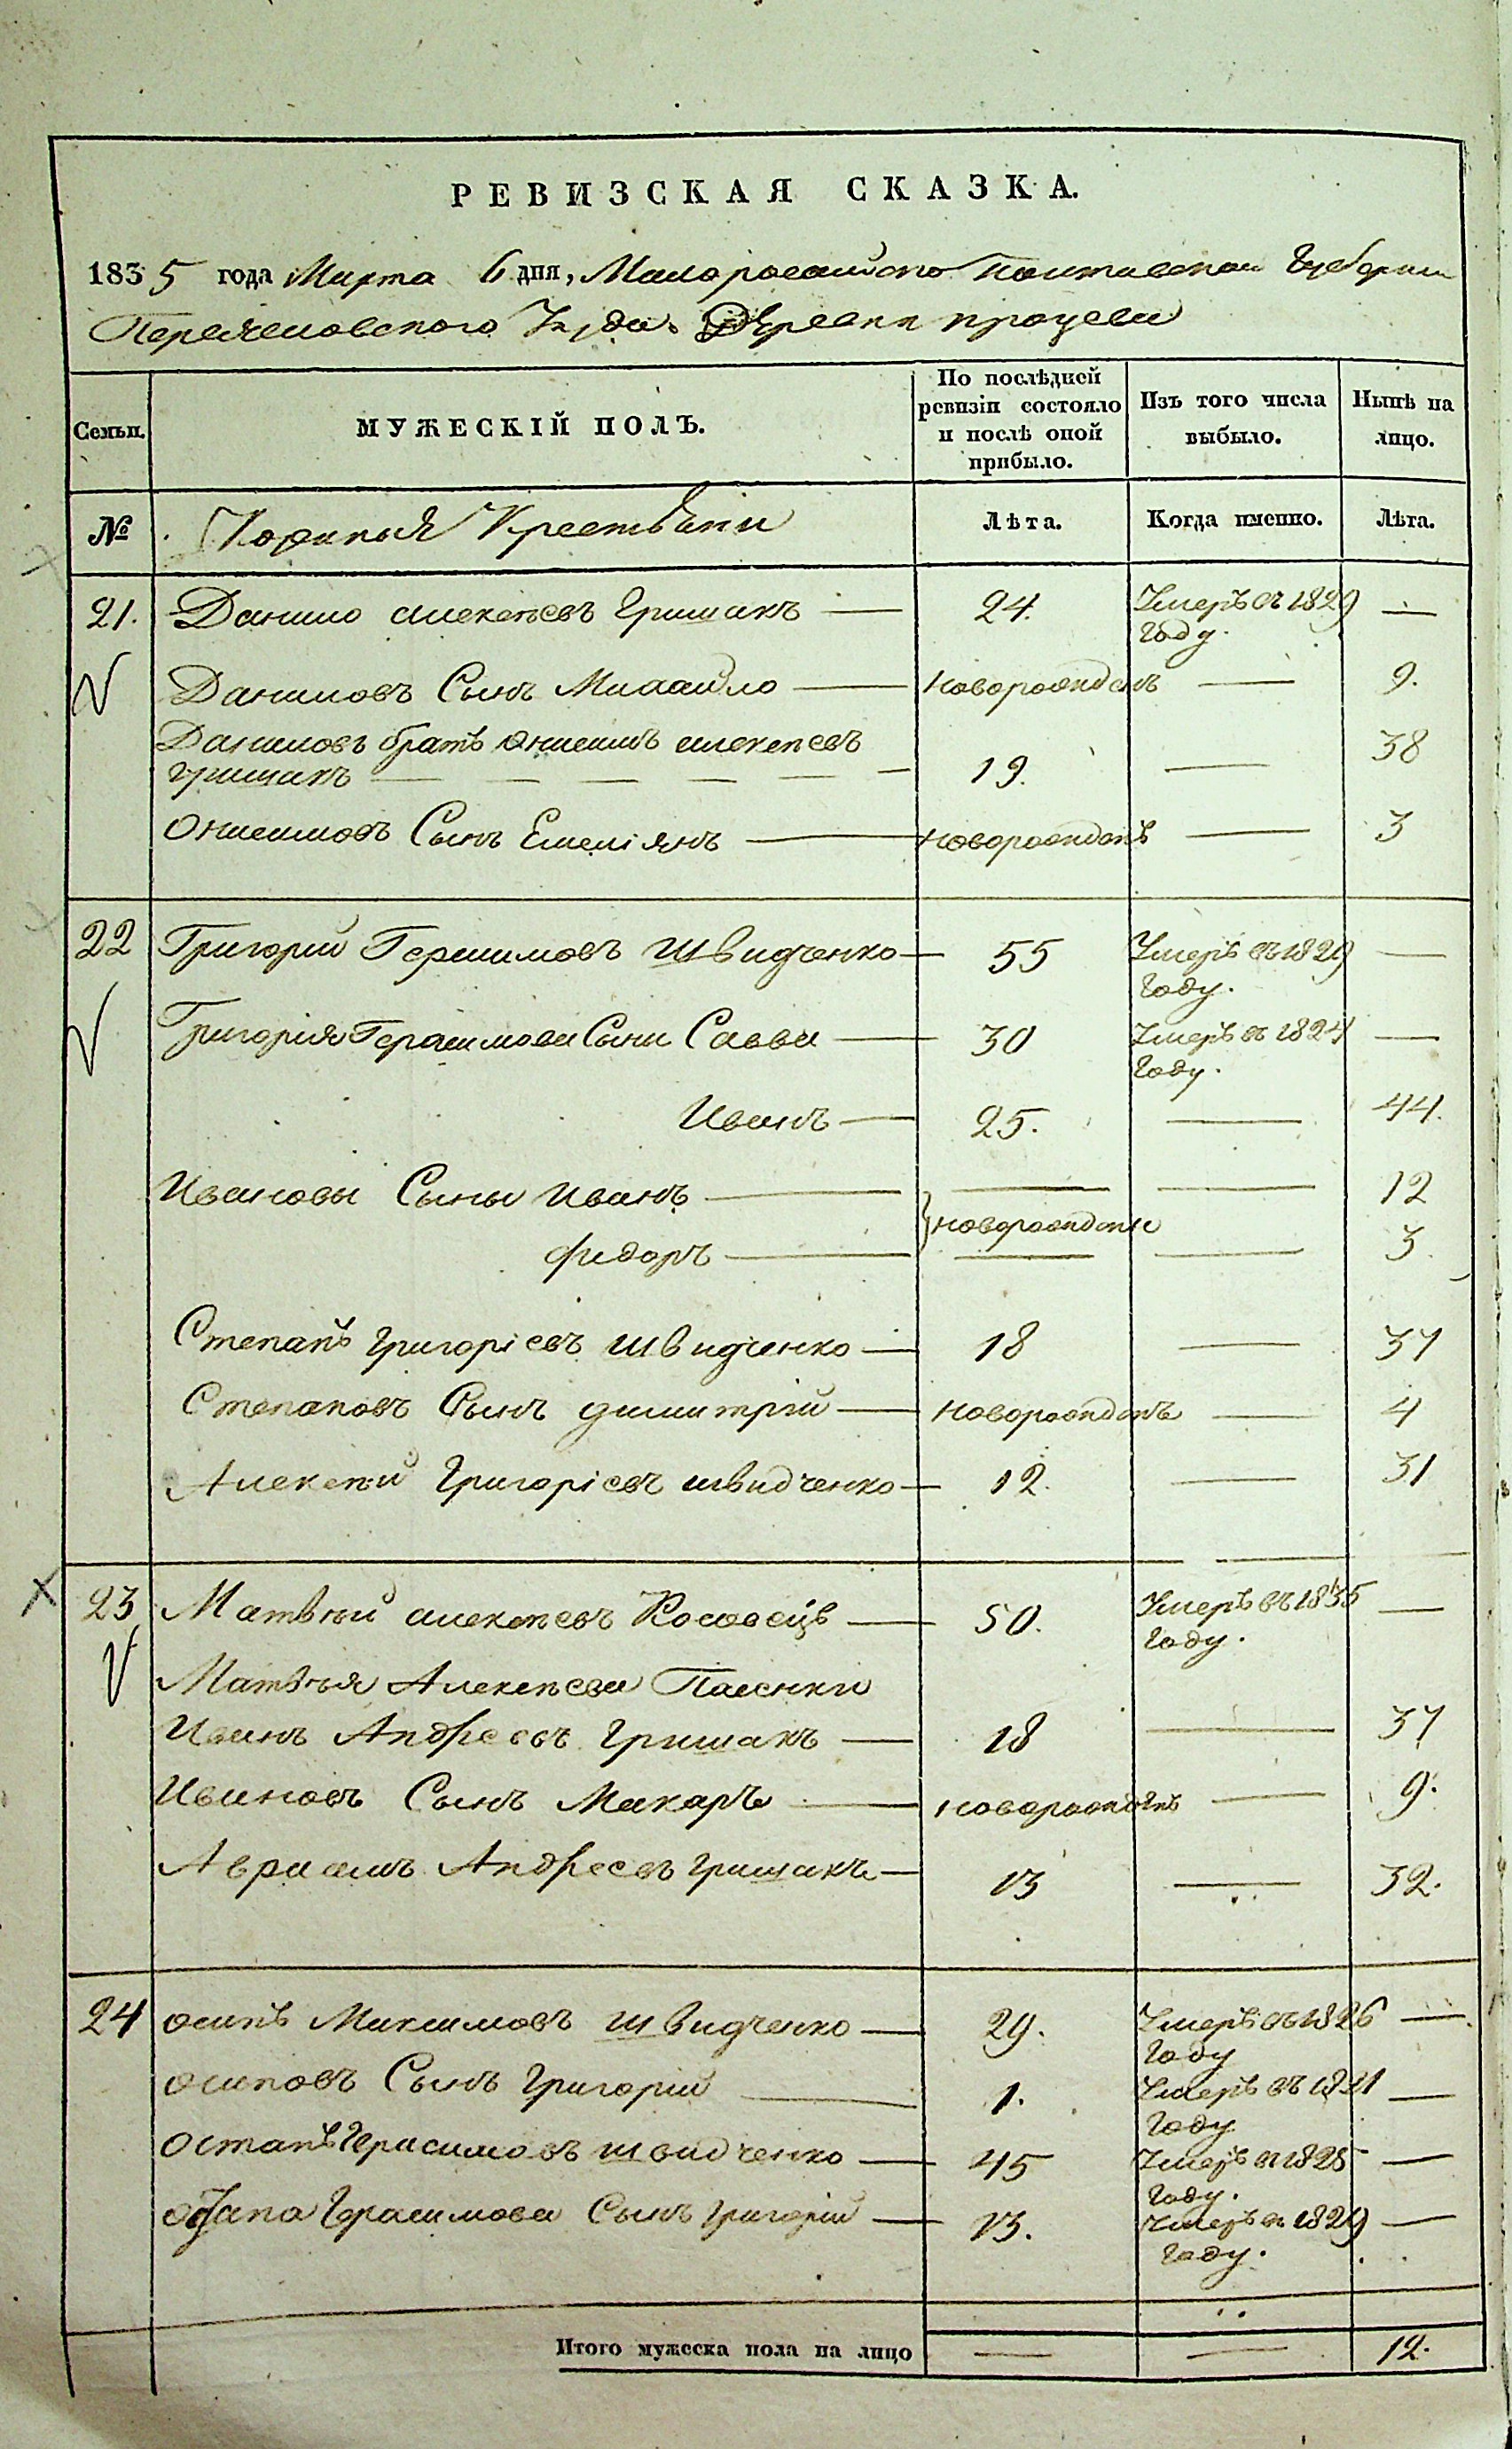 РЕВИЗСКАЯ СКАЗКА.
1835 года Марта 6 дня, Малоросийско Полтавской Губернии
Переяславского Уезда. Деревни процева
Семьи. МУЖЕСКІЙ ПОЛЪ. По послѣдней ревизіи состояло и послѣ оной прибыло. Изъ того числа выбыло. Нынѣ на лицо.
№ Крестьяни Лѣта. Когда именно. Лѣта.
21. Данило алексѣевъ Гришакъ — 24. Умеръ въ 1829 году. —
Даниловъ Сынъ Михайло — новорожденъ — 9.
Даниловъ братъ Онисимъ алексѣевъ
гришакъ — 19. — 38
Онисимовъ Сынъ Емеліянъ — новорожденъ — 3
22 Григорий Герасимовъ Швидченко — 55 Умеръ въ 1829 году. —
Григорія Герасимова Сыни Савва — 30 Умеръ въ 1824 году. —
Иванъ — 25. — 44.
Ивановы Сыны Иванъ — 12
} новорожденные
фидоръ — 3.
Степанъ григоріевъ швидченко — 18 — 37
Степановъ Сынъ димитрій — новорожденъ — 4
Алексѣй Григоріевъ швидченко — 12. — 31
23 Матвѣй алексѣевъ Косовецъ — 50. Умеръ въ 1835 году. —
Матвѣя Алексѣева Пасенки
Иванъ Андреевъ гришакъ — 18 — 37
Ивановъ Сынъ Макаръ — новорожденъ — 9.
Авраамъ Андреевъ гришакъ — 13 — 32.
24 осипъ Максимовъ швидченко — 29. Умеръ въ 1826 году —
осиповъ Сынъ Григорій — 1. Умеръ въ 1821 году —
Остапъ Герасимовъ швидченко — 45 Умеръ въ 1825 году. —
Остапа Герасимова Сынъ григорій — 13. Умеръ въ 1829 году. —
Итого мужеска пола на лицо — — 12.